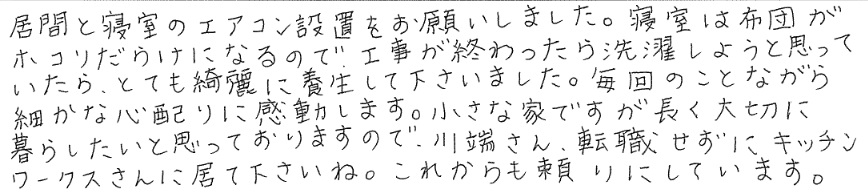 居間と寝室のエアコン設置をお願いしました。寝室は布団が
ホコリだらけになるので、工事が終わったら洗濯しようと思って
いたら、とても綺麗に養生して下さいました。毎回のことながら
細かな心配りに感動します。小さな家ですが長く大切に
暮らしたいと思っておりますので、川端さん、転職せずにキッチン
ワークスさんに居て下さいね。これからも頼りにしています。